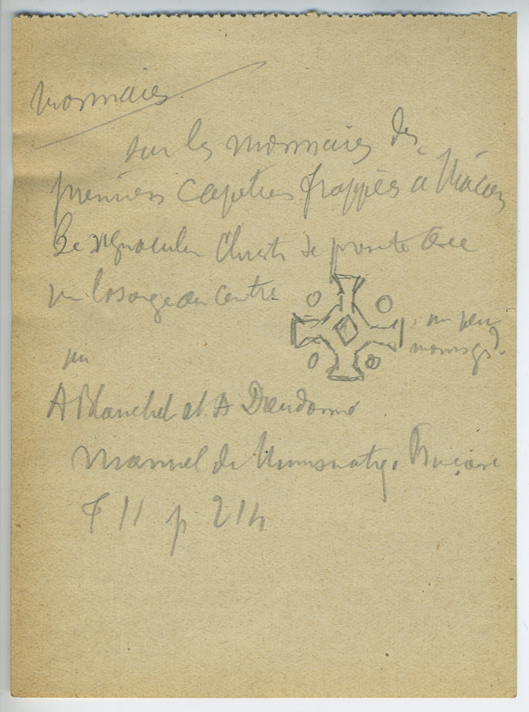 monnaies
sur les monnaies des
premiers Capétiens frappées à Mâcon
le signaculum Christi se présente avec
un losange au centre
un peu
moins gd.
in
A Blanchet et A Dieudonné
Manuel de Numismatique Française
T II p 214